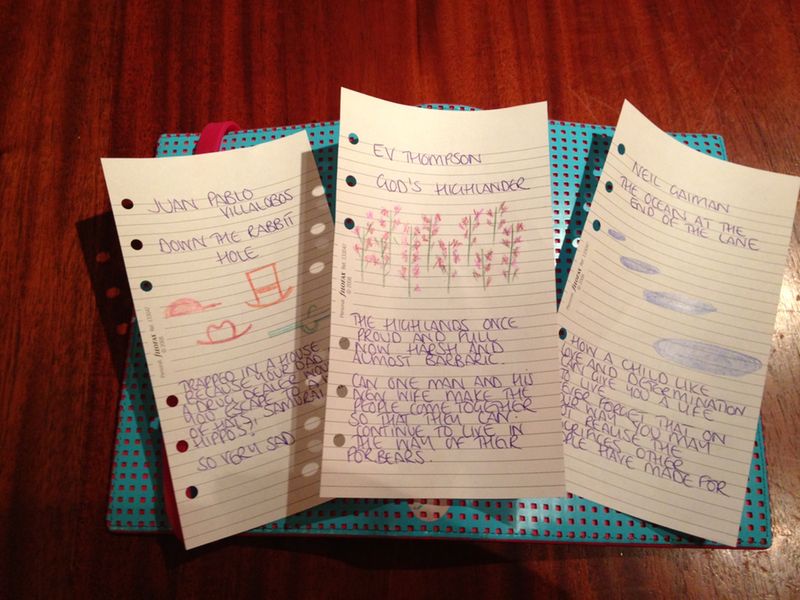 JUAN PABLO
VILLALOBOS
DOWN THE RABBIT
HOLE
TRAPPED IN A HOUSE
BECAUSE YOUR DAD
A DRUG DEALER WOU
YOU ESCAPE TO A
OF HATS, SAMURAI
HIPPOS?!
SO VERY SAD
EV THOMPSON
GOD'S HIGHLANDER
Personal FILOFAX
THE HIGHLANDS ONCE
PROUD AND FULL
NOW HARSH AND
ALMOST BARBARIC.
CAN ONE MAN AND HIS
NEW WIFE MAKE THE
PEOPLE COME TOGETHER
SO THAT THEY CAN
CONTINUE TO LIVE IN
THE WAY OF THEIR
FORBEARS.
NEIL GAIMAN
THE OCEAN AT THE
END OF THE LANE
HOW A CHILD LIKE
LOVE AND DETERMINATION
GIVE YOU A LIFE
FORGET THAT ON
WAY YOU MAY
BECAUSE THE
OTHER
HAVE MADE FOR